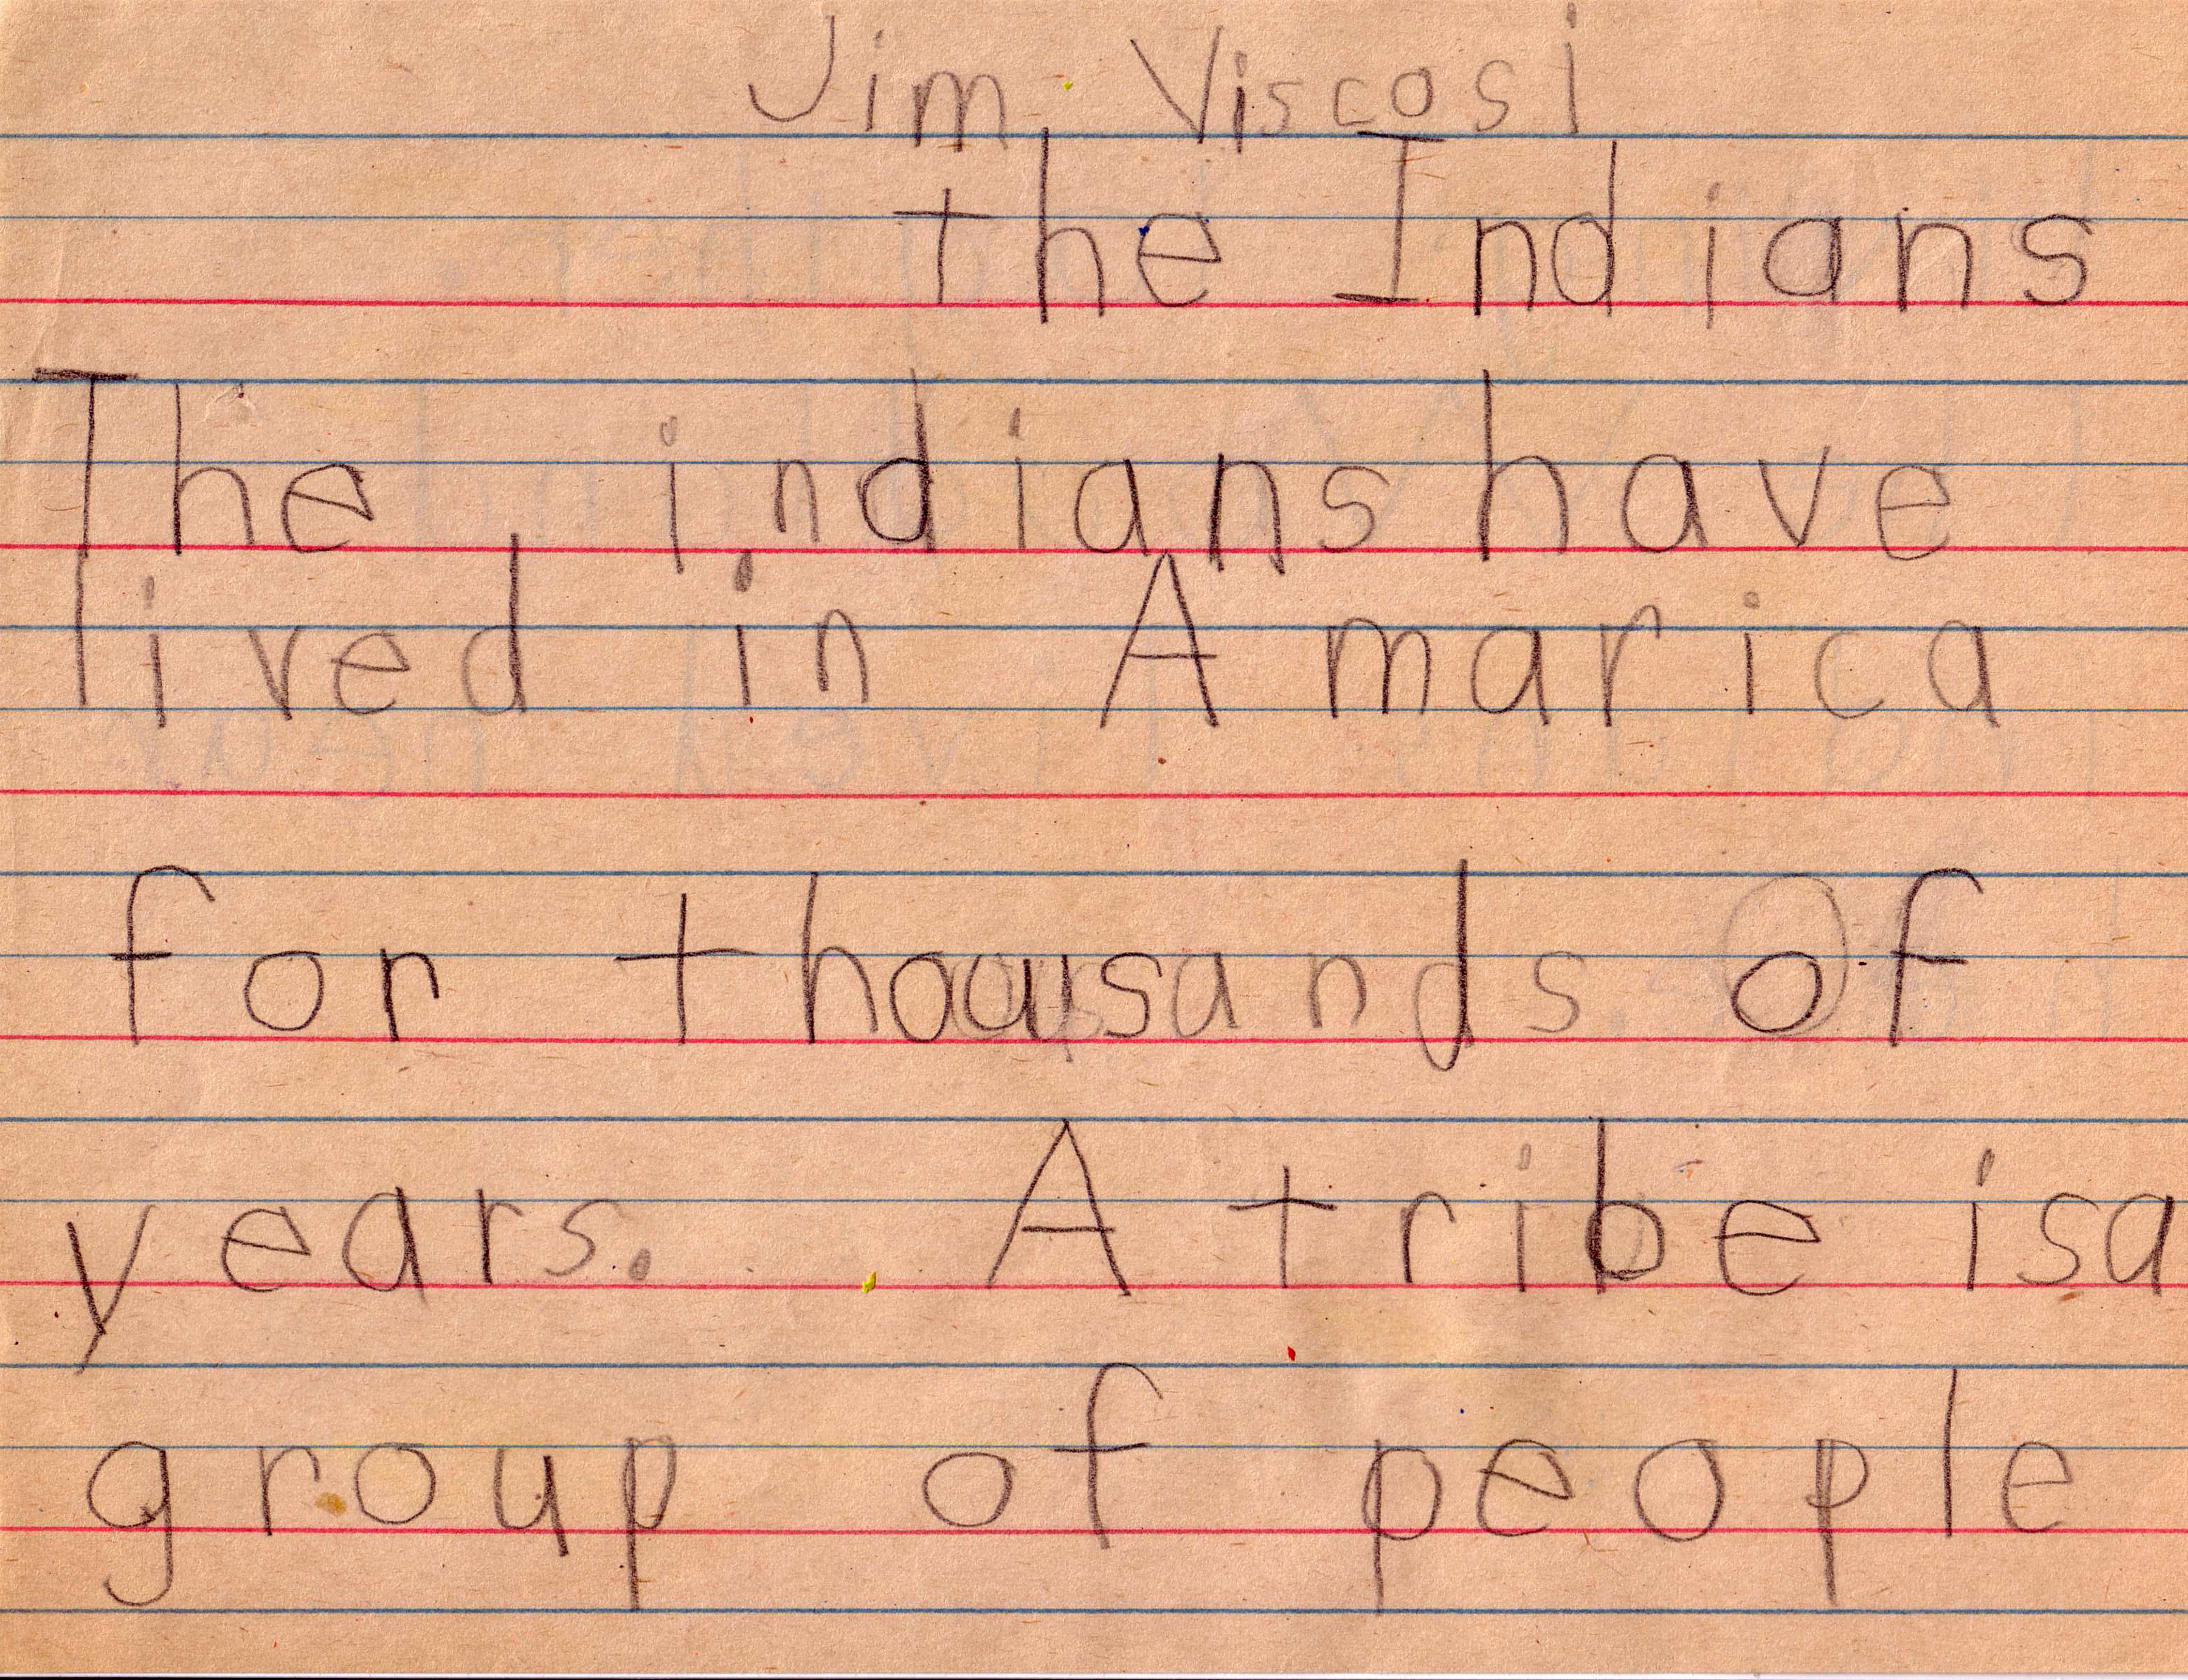 Jim Viscosi
the Indians
The indians have
lived in Amarica
for thousands of
years. A tribe isa
group of people